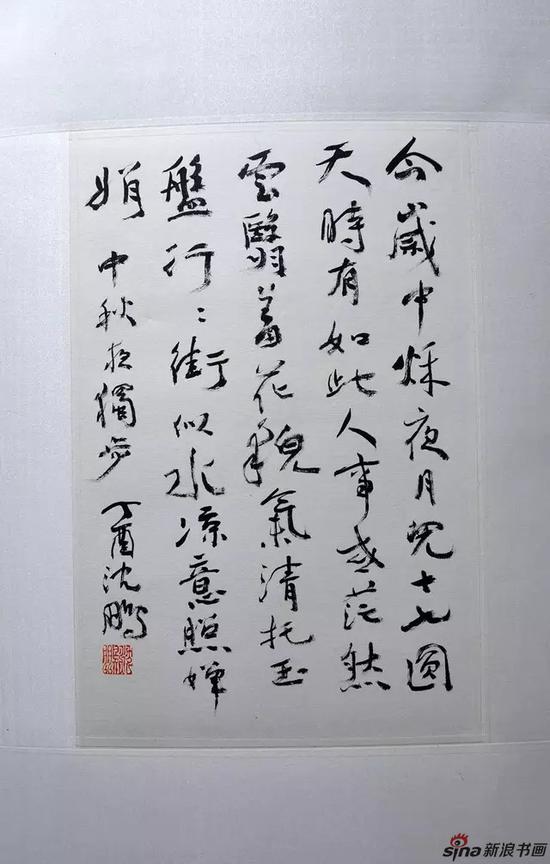 今歲中秌夜月十七圓
天時有如此人事或茫然
雲翳羞花貌氣清托玉
盤行〻街似水凉意照嬋
娟 中秋夜獨步 丁酉沈鵬
sina新浪书画